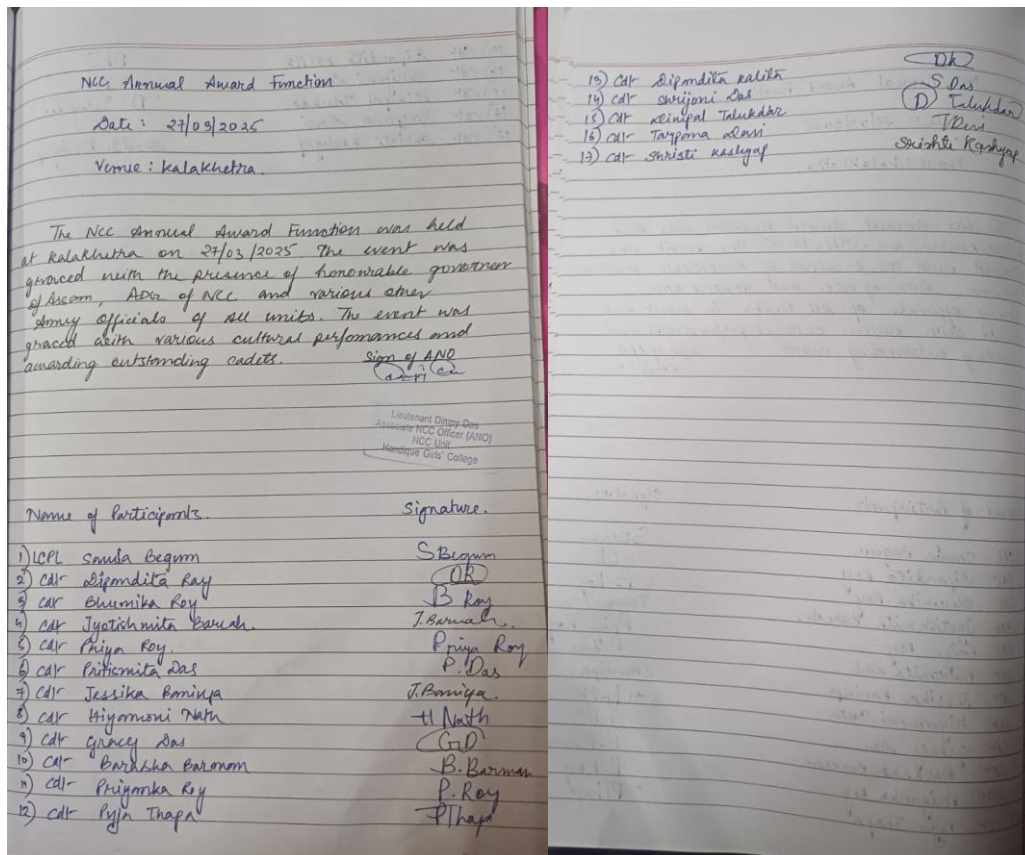 NCC Annual Award Function
Date : 27/03/2025
Venue : Kalakhetra.
The NCC Annual Award Function was held
at Kalakhetra on 27/03/2025 The event was
graced with the presence of honourable governor
of Assam, ADG of NCC and various other
Army officials of all units. The event was
graced with various cultural perfomances and
awarding outstanding cadets.
Sign of ANO
Lieutenant Dimpy Das
Associate NCC Officer (ANO)
NCC Unit
Handique Girls' College
Name of Participants. Signature.
1) LCPL Begum S Begum
2) Cdt Dipondita Ray DR
3) Cdt Bhumika Roy B Roy
4) Cdt Jyotishmita Baruah. J. Baruah.
5) Cdt Priya Roy. Priya Roy
6) Cdt Pritismita Das P. Das
7) Cdt Jessika Baniya J. Baniya.
8) Cdt Hiyamoni Nath H Nath
9) Cdt Gracey Das GD
10) Cdt Barasha B. Barman
11) Cdt Priyanka Roy P. Roy
12) Cdt Thapa PThapa
13) Cdt Dipondita Kalita DK
14) Cdt Shrijoni Das S Das
15) Cdt Talukdar D Talukdar
16) Cdt Devi TDevi
17) Cdt Shristi Kashyap Srishti Kashyap